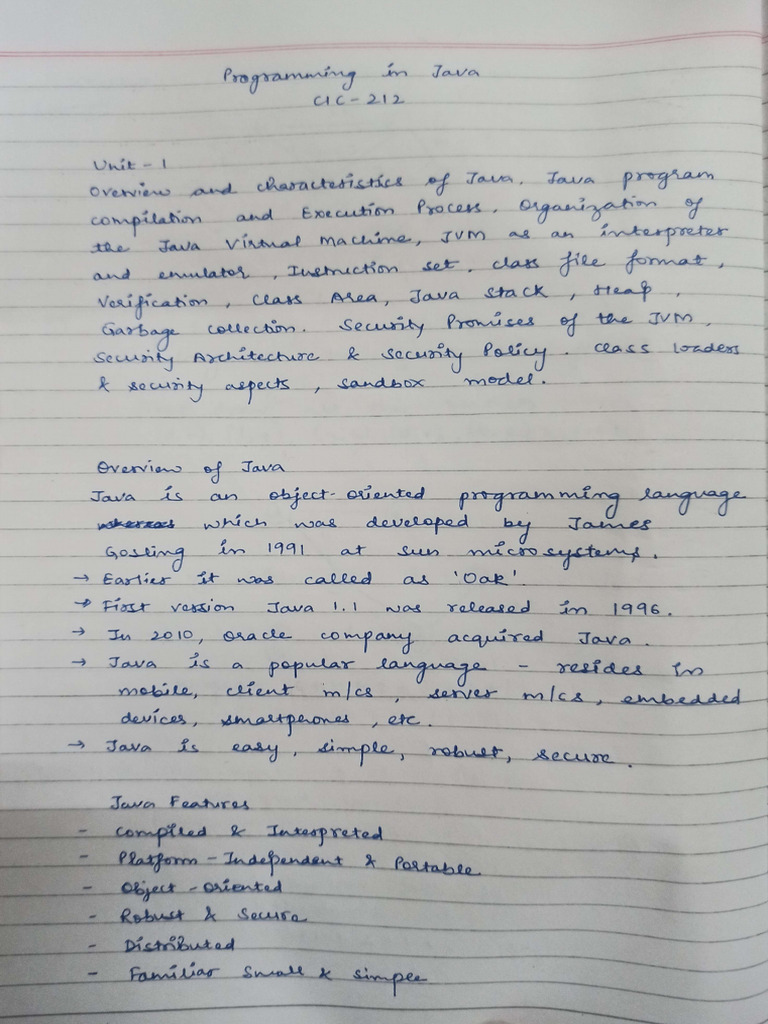 Programming in Java
CIC-212
Unit - 1
Overview and characteristics of Java. Java program
compilation and Execution Process. Organization of
the Java Virtual Machine, JVM as an interpreter
and emulator, Instruction set, class file format,
Verification, Class Area, Java Stack, Heap,
Garbage collection. Security Promises of the JVM,
Security Architecture & Security Policy. Class loaders
& security aspects, sandbox model.
Overview of Java
Java is an object-oriented programming language
whereas which was developed by James
Gosling in 1991 at sun microsystems.
→ Earlier it was called as 'Oak'.
→ First version Java 1.1 was released in 1996.
→ In 2010, oracle company acquired Java.
→ Java is a popular language - resides in
mobile, client m/cs, server m/cs, embedded
devices, smartphones, etc.
→ Java is easy, simple, robust, secure.
Java Features
- Compiled & Interpreted
- Platform-Independent & Portable
- Object-oriented
- Robust & Secure
- Distributed
- Familiar Small & simple